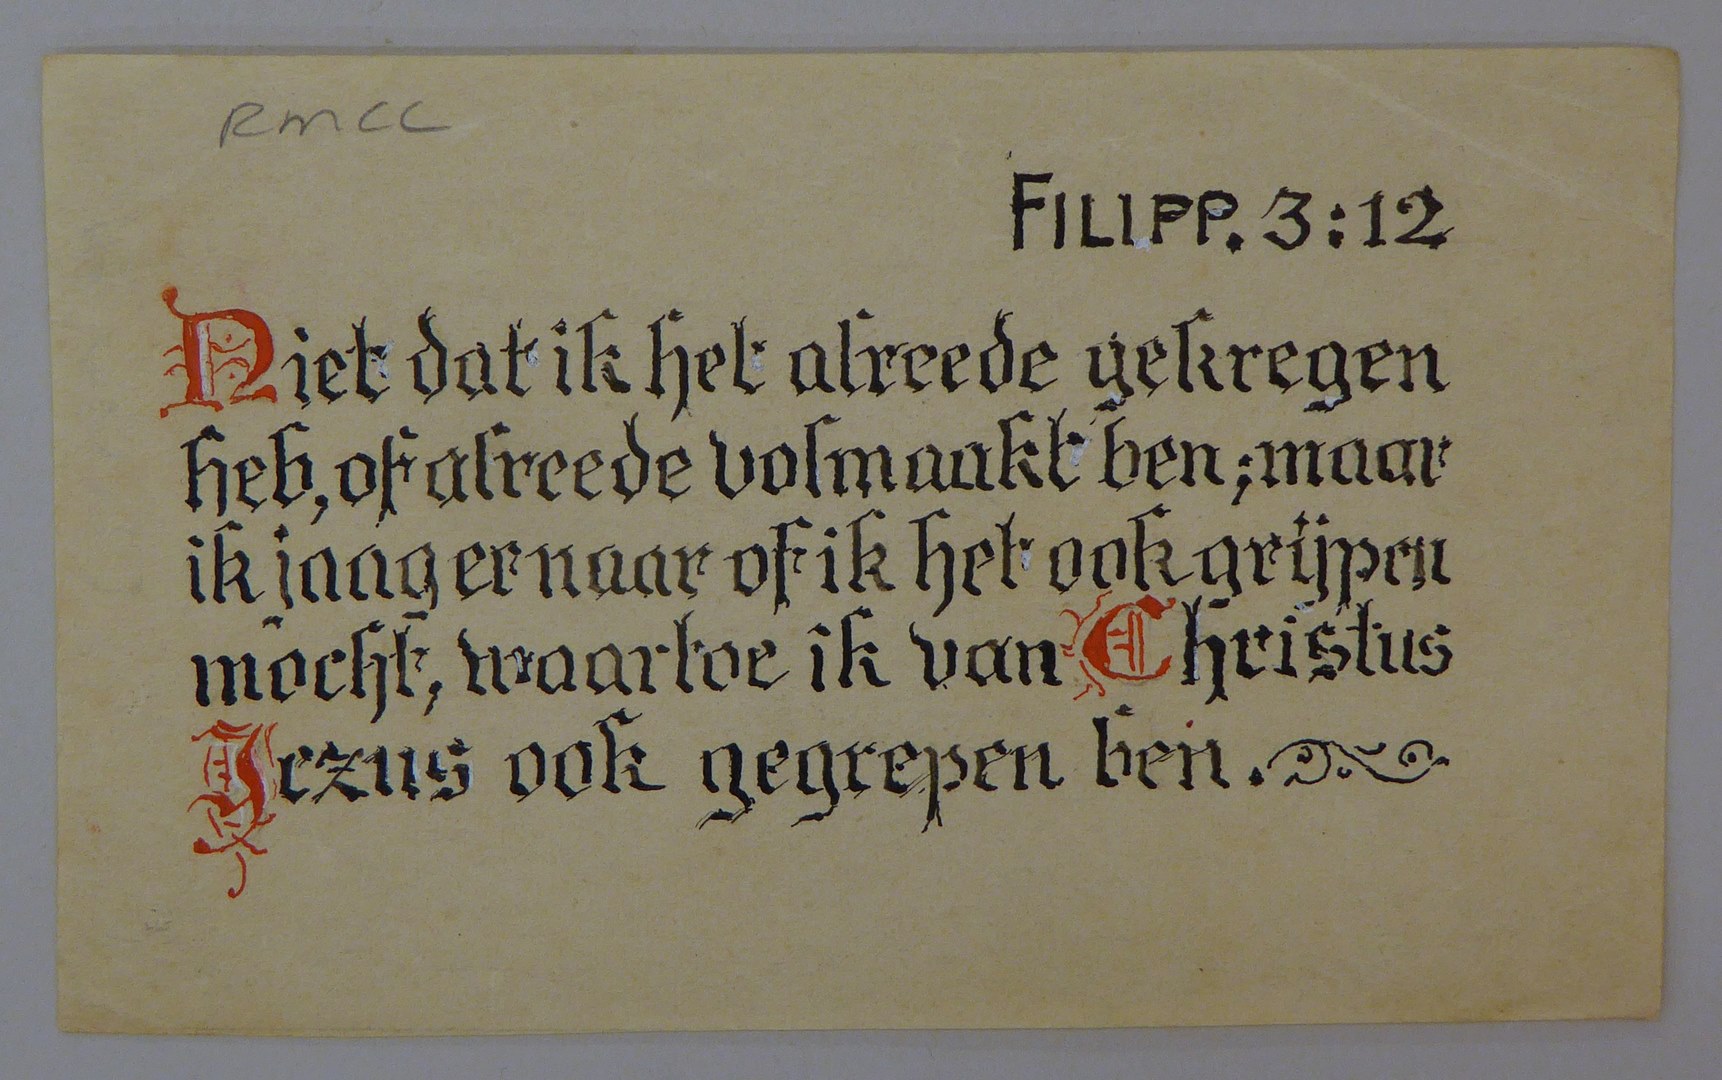 RMCC
FILIPP. 3:12
Niet dat ik het alreede gekregen
heb, of alreede volmaakt ben; maar
ik jaag ernaar of ik het ook grijpen
mocht, waartoe ik van Christus
Jezus ook gegrepen ben.